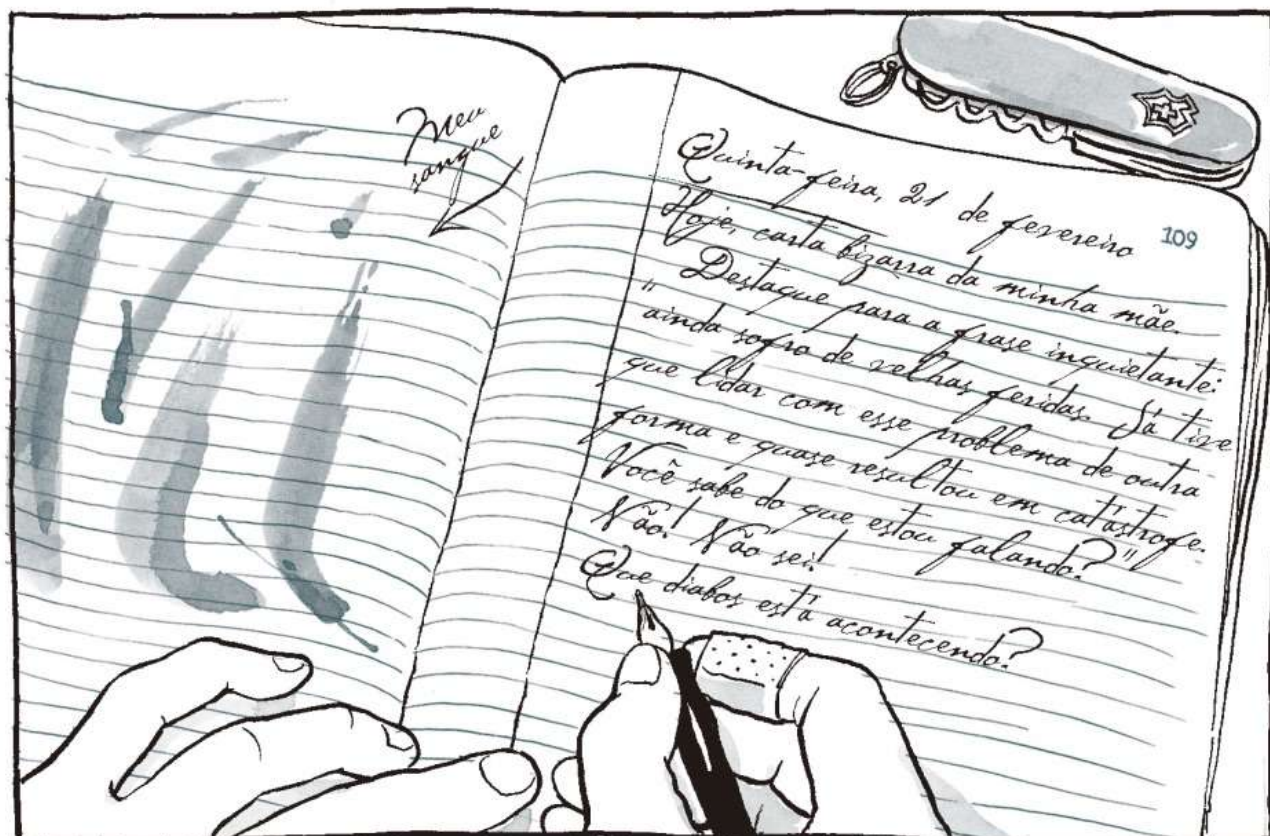 Meu
sangue
Quinta-feira, 21 de fevereiro
109
Hoje, carta bizarra da minha mãe.
Destaque para a frase inquietante:
"ainda sofro de velhas feridas. Já tive
que lidar com esse problema de outra
forma e quase resultou em catástrofe.
Você sabe do que estou falando?"
Não! Não sei!
Que diabos está acontecendo?